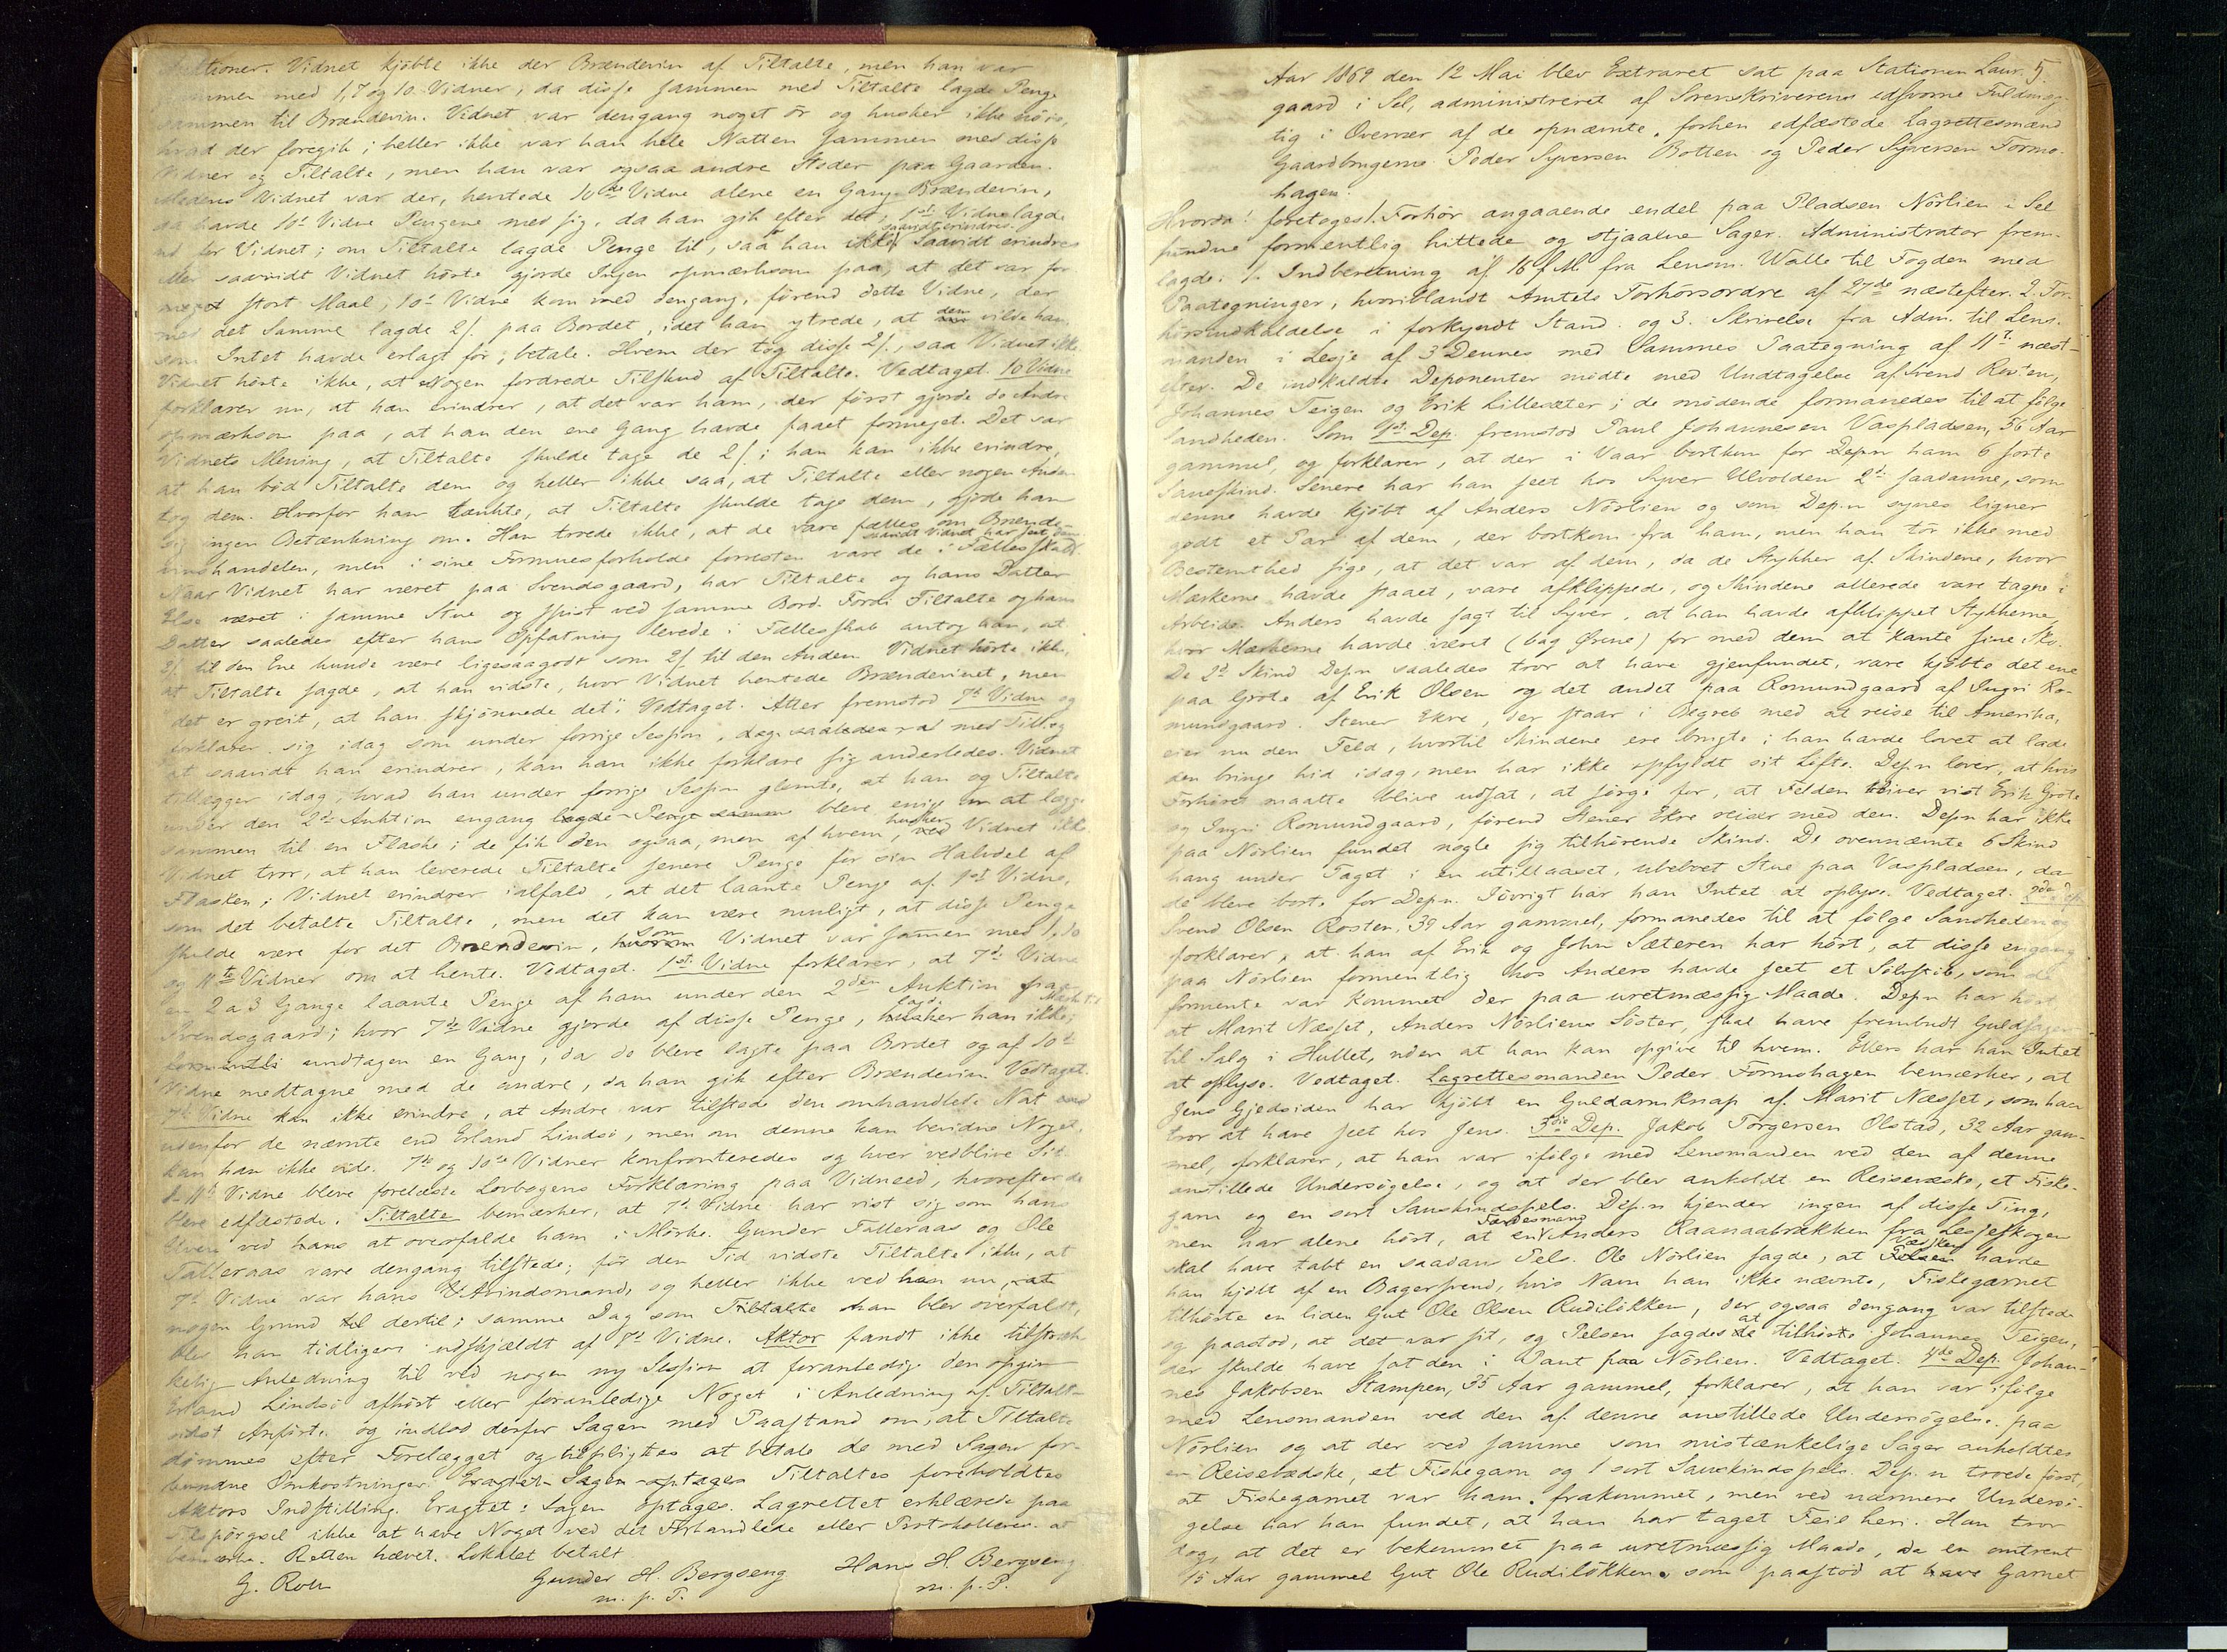 Vidnet kjöbte ikke der Brændevin af Tiltalte, men han var
sammen med 1, 7 og 10 Vidner, da disse sammen med Tiltalte lagde Penge
sammen til Brændevin. Vidnet var dengang noget ör og husker ikke nöie,
hvad der foregik; heller ikke var han hele Natten sammen med disse
Vidner og Tiltalte, men han var ogsaa andre Steder paa Gaarden.
Medens Vidnet var der, hentede 10de Vidne alene en Gang Brændevin,
da havde 10de Vidne Pengene med sig, da han gik efter det; 1ste Vidne lagde
ud for Vidnet; om Tiltalte lagde Penge til, saa han ikke saavidt erindres
eller saavidt Vidnet hörte gjorde Ingen opmærksom paa, at det var for
noget stort Maal, 10de Vidne kom ned dengang, förend dette Vidne, der
med det Samme lagde 2/. paa Bordet, idet han ytrede, at dem vilde han,
som Intet havde erlagt för, betale. Hvem der tog disse 2/., saa Vidnet ikke
Vidnet hörte ikke, at Nogen fordrede Tilskud af Tiltalte. Vedtaget. 10 Vidne
forklarer nu, at han erindrer, at det var ham, der först gjorde de Andre
opmærksom paa, at han den ene Gang havde faaet formeget. Det var
Vidnets Mening, at Tiltalte skulde tage de 2/; han kan ikke erindre,
at han böd Tiltalte dem og heller ikke saa, at Tiltalte eller nogen Anden
tog dem. Hvorfor han tænkte, at Tiltalte skulde tage dem, gjorde han
sig ingen Betænkning om. Han troede ikke, at de vare fælles om Brænde-
vinshandelen, men i sine Formuesforholde forresten vare de i Fællesskab.
saavidt Vidnet har seet dem
Naar Vidnet har været paa Svendsgaard, har Tiltalte og hans Datter
Else været i samme Stue og spist ved samme Bord. Fordi Tiltalte og hans
Datter saaledes efter hans Opfatning levede i Fællesskab antog han, at
2/. til den Ene kunde være ligesaagodt som 2/ til den Anden. Vidnet hörte ikke,
at Tiltalte sagde, at han vidste, hvor Vidnet hentede Brændevinet, men
"det er greit, at han skjönnede det". Vedtaget. Atter fremstod 7de Vidne og
forklarer sig idag som under forrige Session,
at saavidt han erindrer, kan han ikke forklare sig anderledes. Vidnet
tillægger idag, hvad han under forrige Session glemte, at han og Tiltalte
under den 2de Auktion engang bleve enige om at lægge
sammen til en Flaske; de fik den ogsaa, men af hvem, husker Vidnet ikke
Vidnet tror, at han leverede Tiltalte senere Penge for sin Halvdel af
Flasken; Vidnet erindrer ialfald, at det laante Penge af 1ste Vidne,
som det betalte Tiltalte, men det kan være muligt, at disse Penge
skulde være for det Brændevin, som Vidnet var sammen med 1, 10
og 11te Vidner om at hente. Vedtaget. 1ste Vidne forklarer, at 7de Vidne
en 2 a 3 Gange laante Penge af ham under den 2den Auktion paa
Svendsgaard; hvor 7de Vidne gjorde af disse Penge, lagde han ikke
undtagen en Gang, da de bleve lagte paa Bordet og af 10de
Vidne medtagne med de andre, da han gik efter Brændevin. Vedtaget.
7de Vidne kan ikke erindre, at Andre var tilstede den omhandlede Nat
udenfor de nævnte end Erland Lindsö, men om denne kan bevidne Noget,
kan han ikke vide. 7de og 10de Vidner konfronteredes og hver vedblive Sit.
De 11te Vidne bleve forelæste Lovbogens Forklaring paa Vidneed, hvorefter de
bleve edfæstede. Tiltalte bemærker, at 7de Vidne har vist sig som hans
Uven ved at overfalde ham i Mörke. Gunder Talleraas og Ole
Talleraas vare dengang tilstede; för den Tid vidste Tiltalte ikke, at
7de Vidne var hans Avindsmand, og heller ikke ved han nu
nogen Grund dertil; samme Dag som Tiltalte blev overfaldt,
blev han tidligere udskjældt af 7de Vidne. Aktor fandt ikke tilstræk-
kelig Anledning til ved nogen ny Session at foranledige den opgivne
Erland Lindsö afhört eller foranledige Noget i Anledning af Tiltalt-
sidst Anförte og indlod derfor Sagen med Paastand om, at Tiltalte
dömmes efter Forelægget og tilpligtes at betale de med Sagen for-
bundne Omkostninger. Eragtet Sagen optages Tiltaltes foreholdtes
Aktors Indstilling. Eragtet: Sagen optages. Lagrettet erklærede paa
Tilspörgsel ikke at have Noget ved det Forhandlede eller Protokolleren at
bemærke. Retten hævet. Lokalet betalt.
G. Roll Gunder H. Bergseng Hans H. Bergseng
m. p. P. m. p. P.
5.
Aar 1869 den 12 Mai blev Extraret sat paa Stationen Laur-
gaard i Sel, administreret af Sorenskriverens edsvorne Fuldmæg-
tig i Overvær af de opnævnte, forhen edfæstede Lagrettesmænd
Gaardbrugerne Peder Syversen Botten og Peder Syversen Formo-
hagen.
Hvorda! foretoges/. Forhör angaaende endel paa Pladsen Nörlien i Sel
fundne formentlig hittede og stjaalne Sager. Administrator frem-
lagde: 1. Indberetning af 16 f.M. fra Lensm. Walle til Fogden med
Paategninger, hvoriblandt Amtets Forhörsordre af 27de næstefter. 2. For-
hörsindkaldelse i forkyndt Stand. og 3. Skrivelse fra Adm. til Lens-
manden i Lesje af 3 Dennes med Sammes Paategning af 11te næst-
efter. De indkaldte Deponenter mödte med Undtagelse af Svend Rosten,
Johannes Teigen og Erik Lillesæter; de mödende formanedes til at fölge
Sandheden. Som 1ste Dep. fremstod Paul Johannesen Vaspladsen, 56 Aar
gammel, og forklarer, at der i Vaar bortkom for Depn ham 6 sorte
Saueskind. Senere har han seet hos Syver Ulvolden 2de saadanne, som
denne havde kjöbt af Anders Nörlien og som Dep.n synes ligner
godt et Par af dem, der bortkom fra ham, men han tör ikke med
Bestemthed sige, at det var af dem, da de Stykker af Skindene, hvor
Mærkerne havde staaet, vare afklippede, og Skindene allerede vare tagne i
Arbeide. Anders havde sagt til Syver, at han havde afklippet Stykkerne,
hvor Mærkerne havde været (bag Ørene) for med dem at kante sine Sko.
De 2de Skind Depn saaledes tror at have gjenfundet, vare kjöbte det ene
paa Grote af Erik Olsen og det andet paa Romundgaard af Ingri Ro-
mundgaard. Stener Ekre, der staar i Begreb med at reise til Amerika,
eier nu den Feld, hvortil Skindene ere brugte; han havde lovet at lade
den bringe hid idag, men har ikke opfyldt sit Löfte. Depn lover, at hvis
Forhöret maatte blive udsat, at sörge for, at Felden bliver vist Erik Grote
og Ingri Romundgaard, förend Stener Ekre reiser med den. Depn har ikke
paa Nörlien fundet nogle sig tilhörende Skind. De ovennævnte 6 Skind
hang under Taget i en utillaaset, ubeboet Stue paa Vaspladsen, da
de bleve borte for Depn. Iövrigt har han Intet at oplyse. Vedtaget. 2de Dep.
Svend Olsen Rosten, 39 Aar gammel, formanedes til at fölge Sandheden og
forklarer, at han af Erik og John Sæteren har hört, at disse engang
paa Nörlien formentlig hos Anders havde seet et Sölvstöb, som de
formente var kommet der paa uretmæssig Maade. Depn har hört
at Marit Næsset, Anders Nörliens Söster, skal have frembudt Guldsager
til Salg i Hullet, uden at han kan opgive til hvem. Ellers har han Intet
at oplyse. Vedtaget. Lagrettesmanden Peder Formohagen bemærker, at
Jens Gjedsiden har kjöbt en Guldarmknap af Marit Næsset, som han
tror at have seet hos Jens. 3die Dep. Jakob Torgersen Olstad, 32 Aar gam-
mel, forklarer, at han var ifölge med Lensmanden ved den af denne
anstillede Undersögelse, og at der blev anholdt en Reisevæske, et Fiske-
garn og en sort Saueskindspels. Dep.n kjender ingen af disse Ting,
men har alene hört, at en Færdesmand Anders Raanaabrækken fra Lesjeskogen
skal have tabt en saadan Pels. Ole Nörlien sagde, at Væsken havde
han kjöbt af en Bagersvend, hvis Navn han ikke nævnte, Fiskegarnet
tilhörte en liden Gut Ole Olsen Rudilökken, der ogsaa dengang var tilstede
og paastod, at det var sit, og Pelsen sagdes at tilhöre Johannes Teigen,
der skulde have sat den i Pant paa Nörlien. Vedtaget. 4de Dep. Johan-
nes Jakobsen Stampen, 35 Aar gammel, forklarer, at han var ifölge
med Lensmanden ved den af denne anstillede Undersögelse paa
Nörlien og at der ved samme som mistænkelige Sager anholdtes
en Reisevædske, et Fiskegarn og 1 sort Saueskindspels. Dep.n troede först,
at Fiskegarnet var ham frakommet, men ved nærmere Undersö-
gelse har han fundet, at han har taget Feil heri. Han tror
dog, at det er bekommet paa uretmæssig Maade, da en omtrent
15 Aar gammel Gut Ole Rudilökken, som paastod at have Garnet